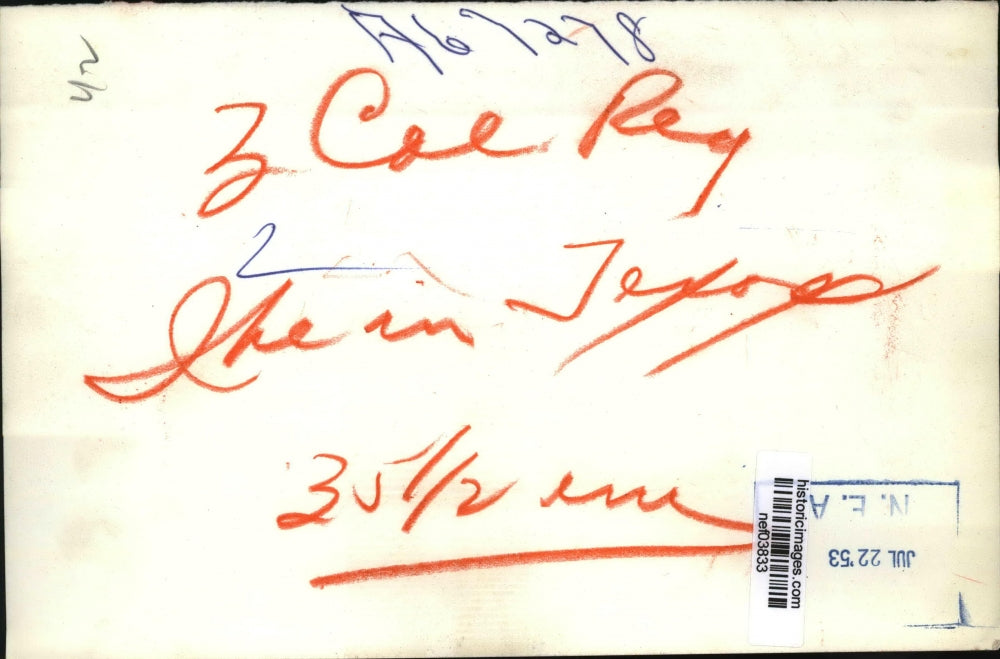 A67278
3 Col Reg
2
Ike in Texas
35 1/2 em
N.E.A
JUL 22 '53
historicimages.com
nef03833